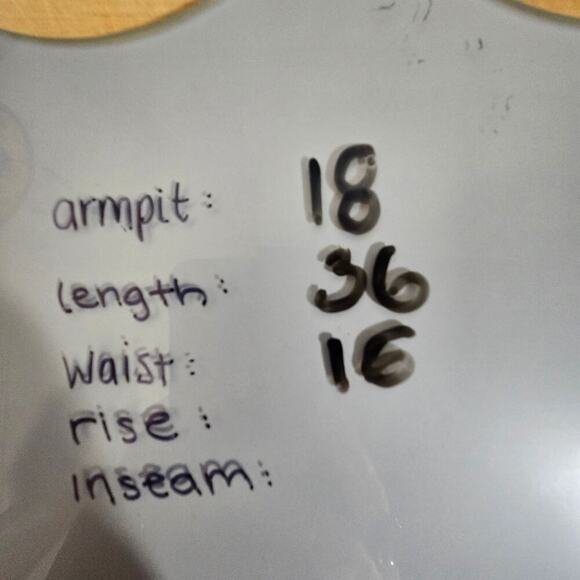 armpit: 18
length: 36
Waist: 16
rise:
inseam: